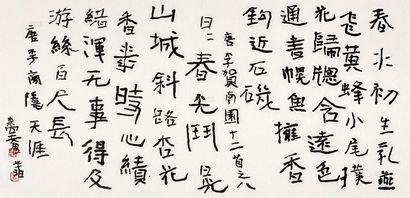 春水初生乳燕
飞黄蜂小尾撲
花歸窗含遠色
通書幌魚擁香
鈎近石磯
唐李賀南園十二首之八
日二春光鬥日光
山城斜路杏花
香幾時心績
緒渾无事得及
游絲百尺長
唐李商隱天涯